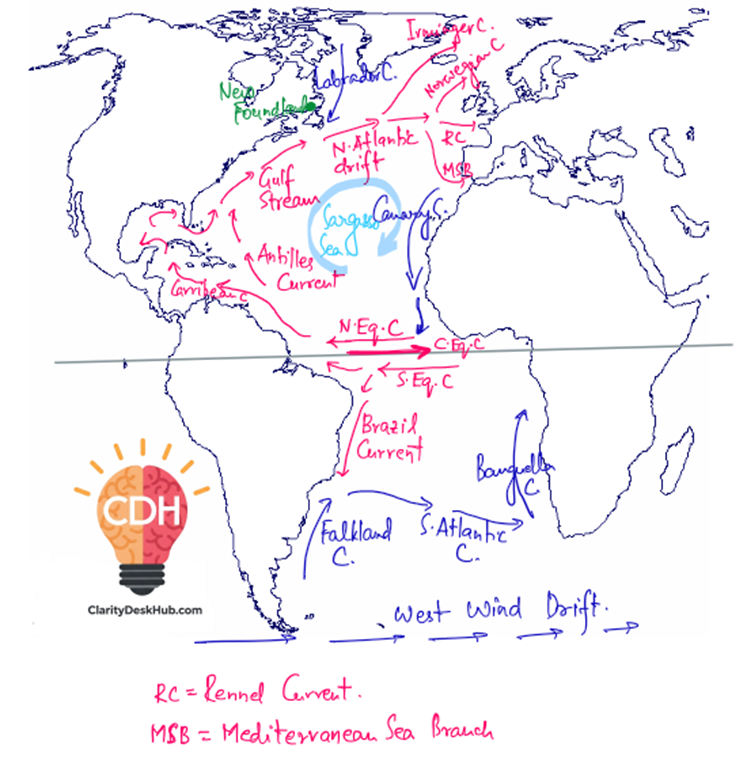 Irminger C.
Norwegian C
Labrador C.
New
Foundland
N. Atlantic
drift
RC
MSB
Gulf
Stream
Sargasso
Sea
Canary S.
Antilles
Current
Carribean C
N. Eq. C
C. Eq. C
S. Eq. C
Brazil
Current
Banguella
C
CDH
Falkland
C.
S. Atlantic
C.
ClarityDeskHub.com
West Wind Drift.
RC = Rennel Current.
MSB = Mediterranean Sea Branch